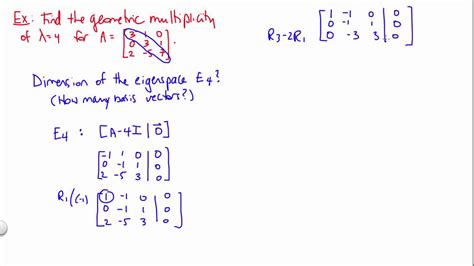 Ex: Find the geometric multiplicity
of λ=4 for A = [3 1 0
0 3 1
2 -5 7].
Dimension of the eigenspace E₄?
(How many basis vectors?)
E₄ : [A-4I | 0⃗]
[-1 1 0 | 0
0 -1 1 | 0
2 -5 3 | 0]
R₁(-1) [1 -1 0 | 0
0 -1 1 | 0
2 -5 3 | 0]
R₃-2R₁ [1 -1 0 | 0
0 -1 1 | 0
0 -3 3 | 0]